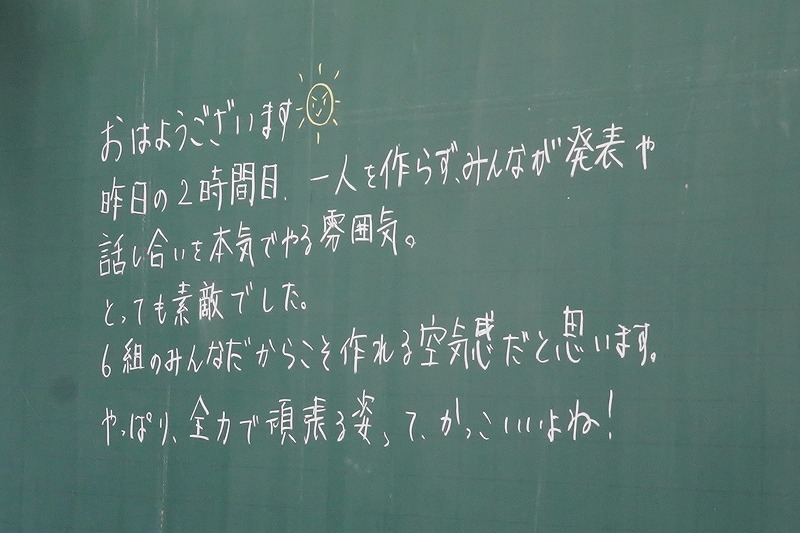 おはようございます
昨日の2時間目、一人を作らず、みんなが発表や
話し合いを本気でやる雰囲気。
とっても素敵でした。
6組のみんなだからこそ作れる空気感だと思います。
やっぱり、全力で頑張る姿って、かっこいいよね!